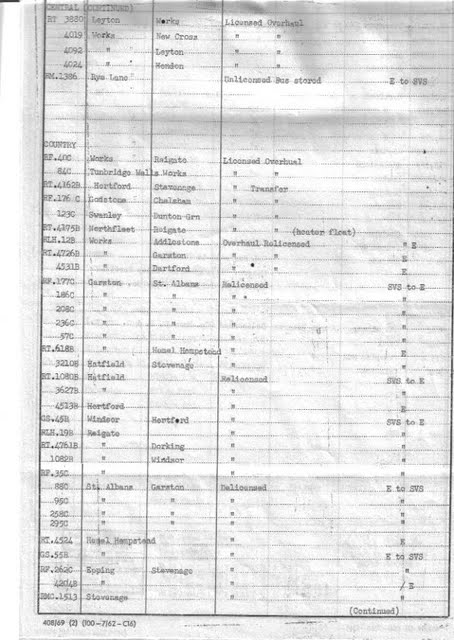 CENTRAL (CONTINUED)
RT 3880 Leyton Works Licensed Overhaul
4019 Works New Cross " "
4092 " Leyton " "
4024 " Hendon " "
RM.1386 Rye Lane Unlicensed Bus stored E to SVS
COUNTRY
RF.40C Works Reigate Licensed Overhual
84C Tunbridge Wells Works " "
RT.4162B Hertford Stevenage " Transfer
RF.176 C Godstone Chelsham " "
123C Swanley Dunton Grn " "
RT.4175B Northfleet Reigate " " (heater float)
RLH.12B Works Addlestone Overhaul Relicensed " E
RT.4726B " Garston " " E
4531B " Dartford " " E
RF.177C Garston St. Albans Relicensed SVS to E
186C " " " "
208C " " " "
236C " " " "
57C " " " "
RT.618B " Hemel Hempstead " E
3210B Hatfield Stevenage " "
RT.1080B Hatfield Relicensed SVS to E
3627B " " "
4513B Hertford " E
GS.45B Windsor Hertford " SVS to E
RLH.19B Reigate " "
RT.4761B " Dorking " "
1082B " Windsor " "
RF.35C " " "
88C St. Albans Garston Delicensed E to SVS
95C " " " "
258C " " " "
295C " " " "
RT.4524 Hemel Hempstead " E
GS.55B " " E to SVS
RF.262C Epping Stevenage " "
4204B " " / E
RMC.1513 Stevenage " "
(Continued)
408/69 (2) (100-7/62-C16)